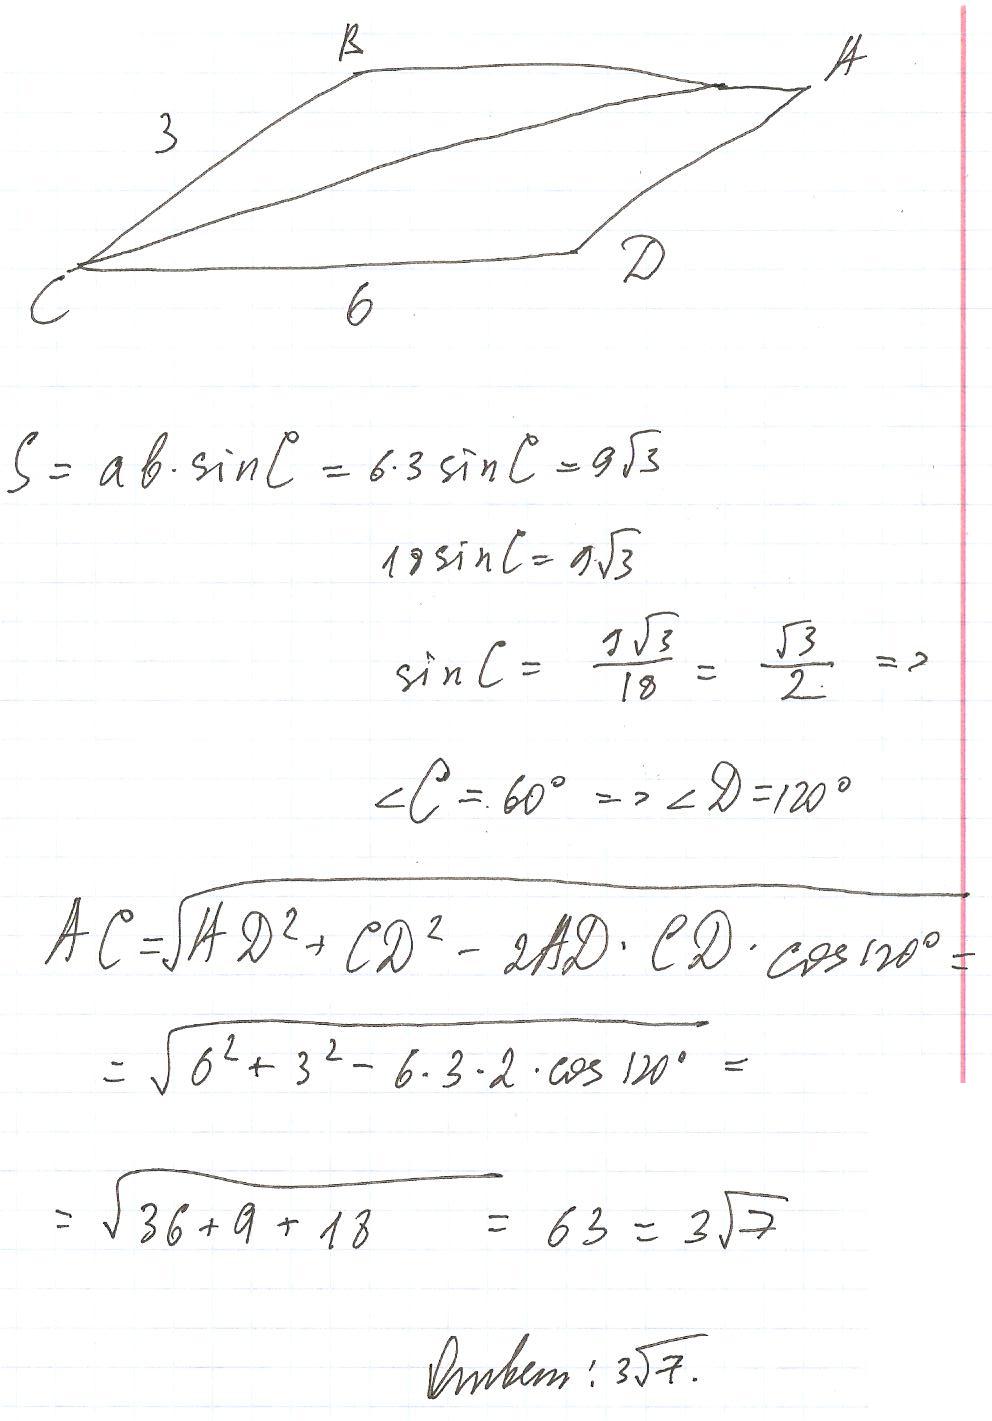 B
A
3
C
6
D
S = ab·sinC = 6·3 sinC = 9√3
18 sinC = 9√3
sinC = 9√3/18 = √3/2 =>
∠C = 60° => ∠D = 120°
AC = √AD² + CD² - 2AD · CD · cos 120° =
= √6² + 3² - 6·3·2·cos 120° =
= √36 + 9 + 18 = 63 = 3√7
Ответ: 3√7.